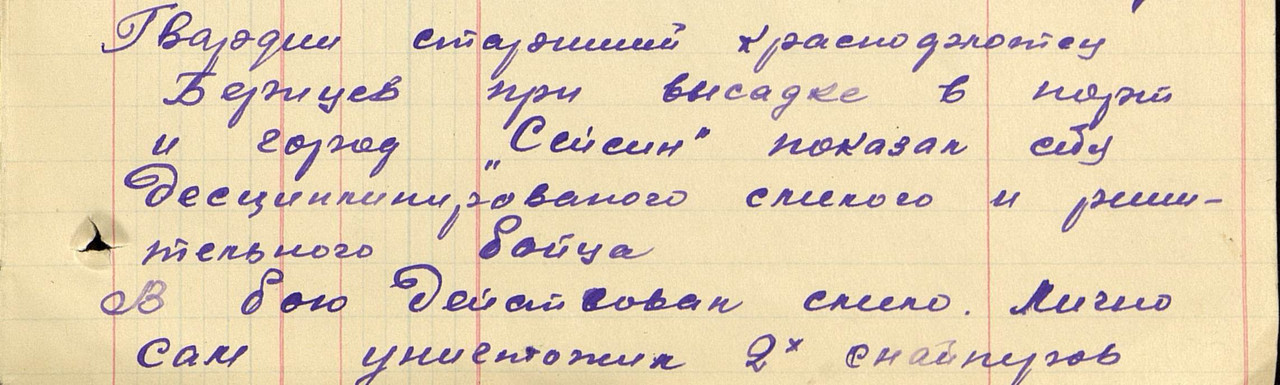 Гвардии старший краснофлотец
Бержцев при высадке в порт
и город „Сейсин" показал себя
десциплинированого смелого и реши-
тельного бойца
В бою действовал смело. Лично
сам уничтожил 2х снайперов